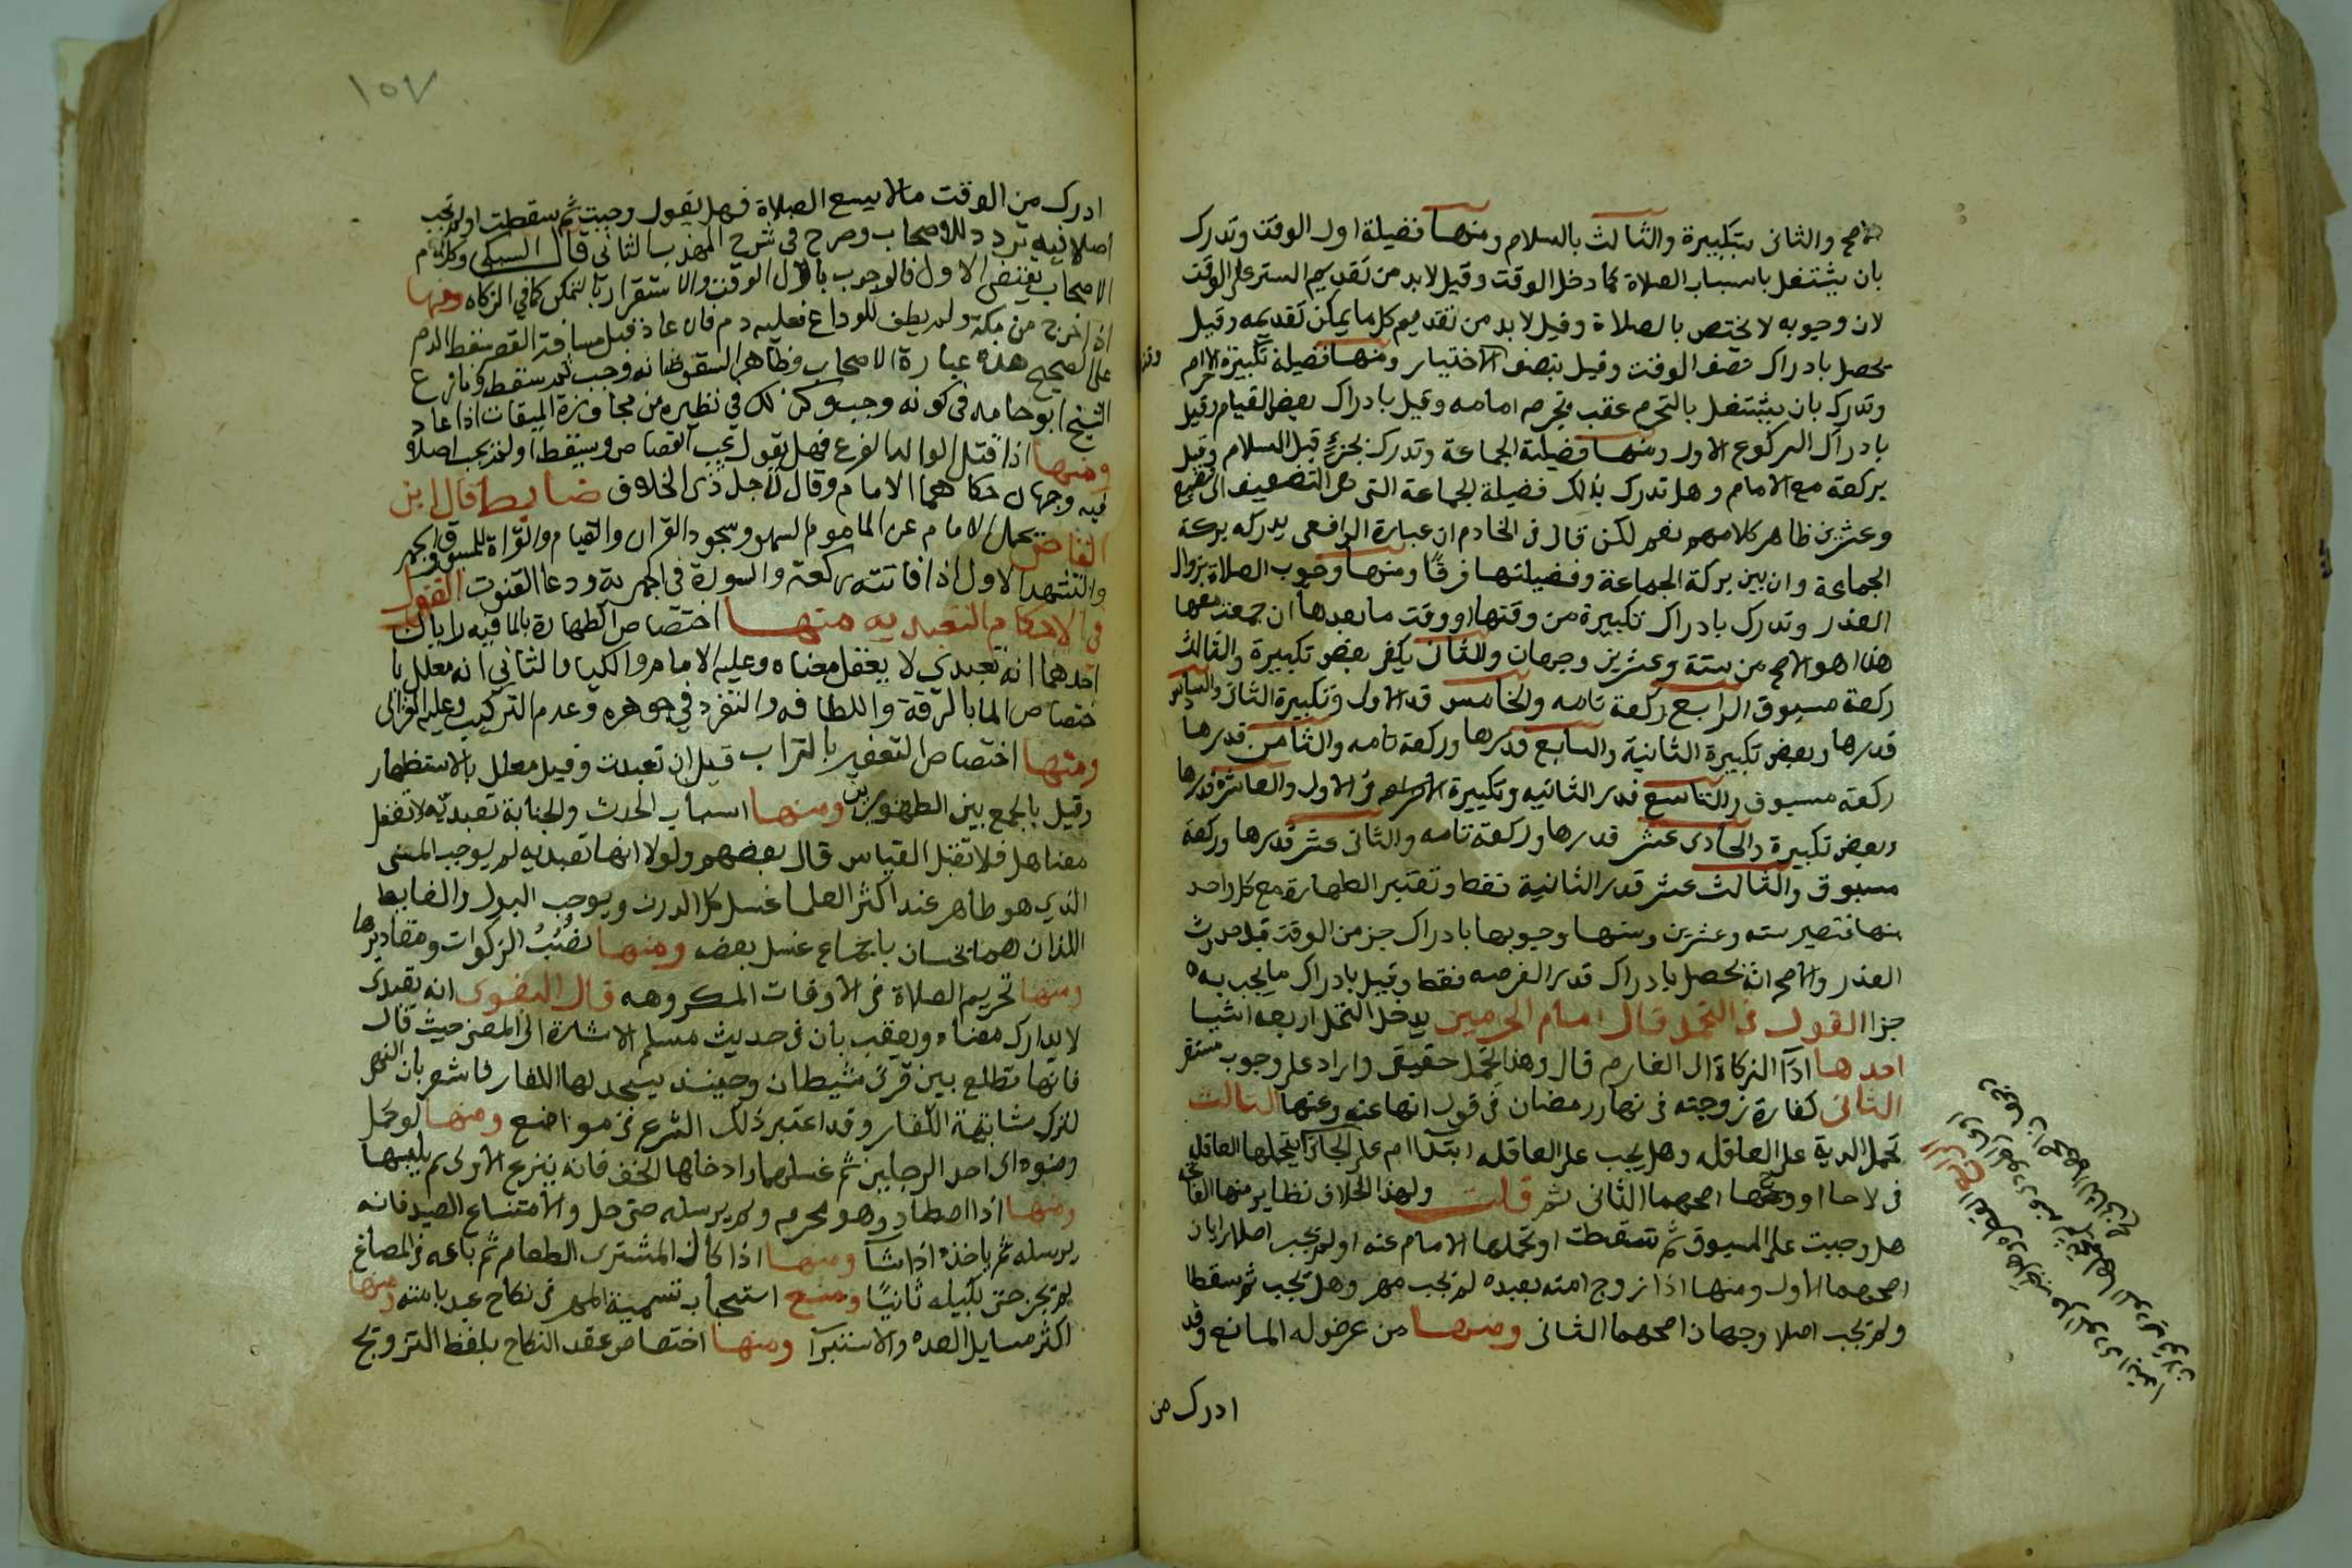 الاصح والثانى بتكبيرة والثالث بالسلام ومنها فضيلة اول الوقت وتدرك
بان يشتغل باسباب الصلاة كما دخل الوقت وقيل لا بد من تقديم الستر على الوقت
لان وجوبه لا يختص بالصلاة وقيل لا بد من تقديم كل ما يمكن تقديمه وقيل
يحصل بادراك نصف الوقت وقيل بنصف الاختيار ومنها فضيلة تكبيرة الاحرام
وتدرك بان يشتغل بالتحرم عقب تحرم امامه وقيل بادراك بعض القيام وقيل
بادراك الركوع الاول ومنها فضيلة الجماعة وتدرك بجزء قبل السلام وقيل
بركعة مع الامام وهل تدرك بذلك فضيلة الجماعة التى هى التضعيف الى بضع
وعشرين ظاهر كلامهم نعم لكن قال فى الخادم ان عبارة الرافعى يدركه بركة
الجماعة وان بين بركة الجماعة وفضيلتها فرقا ومنها وجوب الصلاة بزوال
العذر وتدرك بادراك تكبيرة من وقتها او وقت ما بعدها ان جمعت معها
هذا هو الاصح من ستة وعشرين وجها والثانى يكفى بعض تكبيرة والثالث
ركعة مسبوق الرابع ركعة تامه والخامس قدر الاولى وتكبيرة الثانى والسادس
قدرها وبعض تكبيرة الثانية والسابع قدرها وركعة تامه والثامن قدرها
ركعة مسبوق والتاسع قدر الثانيه وتكبيرة فى الاولى والعاشر قدرها
وبعض تكبيرة والحادى عشر قدرها وركعة تامه والثانى عشر قدرها وركعة
مسبوق والثالث عشر قدر الثانية فقط وتعتبر الطهارة مع كل واحد
منها فتصير سته وعشرين ومنها وجوبها بادراك جز من الوقت قبل حدوث
العذر والاصح انه يحصل بادراك قدر الفرض فقط وقيل بادراك ما يجب به
جزا القول فى التحمل قال امام الحرمين يدخل التحمل اربعه اشيا
احدها اداء الزكاة الى الغارم قال وهذا تحمل حقيقى وارد على وجوب مستقر
الثانى كفارة زوجته فى نهار رمضان فى قول انها عنه وعنها الثالث
تحمل الدية على العاقلة وهل يجب على العاقله ابتداء ام على الجانى ثم يتحملها العاقله
فيه وجهان اصحهما الثانى ثم قلت ولهذا الخلاف نظاير منها الفاتحة
هل وجبت على المسبوق ثم سقطت او تحملها الامام عنه او لم تجب اصلا رايان
اصحهما الاول ومنها اذا زوج امته بعبده لم تجب مهر وهل تجب ثم سقط
ولم تجب اصلا وجهان اصحهما الثانى ومنها من عرض له المانع وقد
ادرك من
١٥٧
ادرك من الوقت ما لا يسع الصلاة فهل يقول وجبت ثم سقطت او لم تجب
اصلا فيه تردد للاصحاب وصرح فى شرح المهذب بالثانى قال السبكى وكلام
الاصحاب يقتضى الاول فالوجوب باول الوقت والاستقرار بالتمكن كما فى الزكاه ومنها
اذا خرج من مكة ولم يطف للوداع فعليه دم فان عاد قبل مسافة القصر سقط الدم
على الصحيح هذه عبارة الاصحاب وظاهر السقوط انه وجب ثم سقط
الشيخ ابو حامد فى كونه وجب وكذلك فى نظيره من مجاوزة الميقات اذا عاد
ومنها اذا قتل الوالد الفرع فهل يقول يجب القصاص ويسقط او لم يجب اصلا
فيه وجهان حكاهما الامام وقال الخلاف ضابط قال ابن
القاص يتحمل الامام عن الماموم السهو وسجود القران والقيام والقراة للمسبوق والجهر
والتشهد الاول اذا فاتته ركعة والسورة فى الجهرية ودعا القنوت القول
فى الاحكام التعبديه منها اختصاص الطهارة بالما فيه رايان
احدهما انه تعبدى لا يعقل معناه وعليه الامام والكيا والثانى انه معلل با
ختصاص الما بالرقة واللطافه والتفرد فى جوهره وعدم التركيب وعليه الغزالى
ومنها اختصاص التعفير بالتراب قيل انه تعبدت وقيل معلل بالاستظهار
وقيل بالجمع بين الطهورين ومنها اسباب الحدث والجنابة تعبدية لا تعقل
معناها فلا تقبل القياس قال بعضهم ولولا انها تعبديه لم يوجب المنى
الذى هو طاهر عند اكثر العلما غسل كل البدن ويوجب البول والغايط
اللذان هما نجسان باجماع غسل بعضه ومنها نصب الزكوات ومقاديرها
ومنها تحريم الصلاة فى الاوقات المكروهه قال البغوى انه تعبدى
لا يدرك معناه ويعقب بان فى حديث مسلم الاشارة الى المعنى حيث قال
فانها تطلع بين قرنى شيطان وحينئذ يسجد لها الكفار فاشعر بان النهى
لترك مشابهة الكفار وقد اعتبر ذلك الشرع فى مواضع ومنها لو كمل
وضوه الى احد الرجلين ثم غسلها وادخلها الخف فانه ينزع الاولى ثم يلبسها
ومنها اذا اصطاد وهو محرم ولم يرسله حتى حل والامتناع الصيد فانه
يرسله ثم ياخذه اذا شآ ومنها اذا كال المشترى الطعام ثم باعه فى الصاع
لم يجز حتى يكيله ثانيا ومنع استحباب تسمية المهر فى نكاح عبده بامته ومنها
اكثر مسايل العده والاستبرآ ومنها اختصاص عقد النكاح بلفظ التزويج